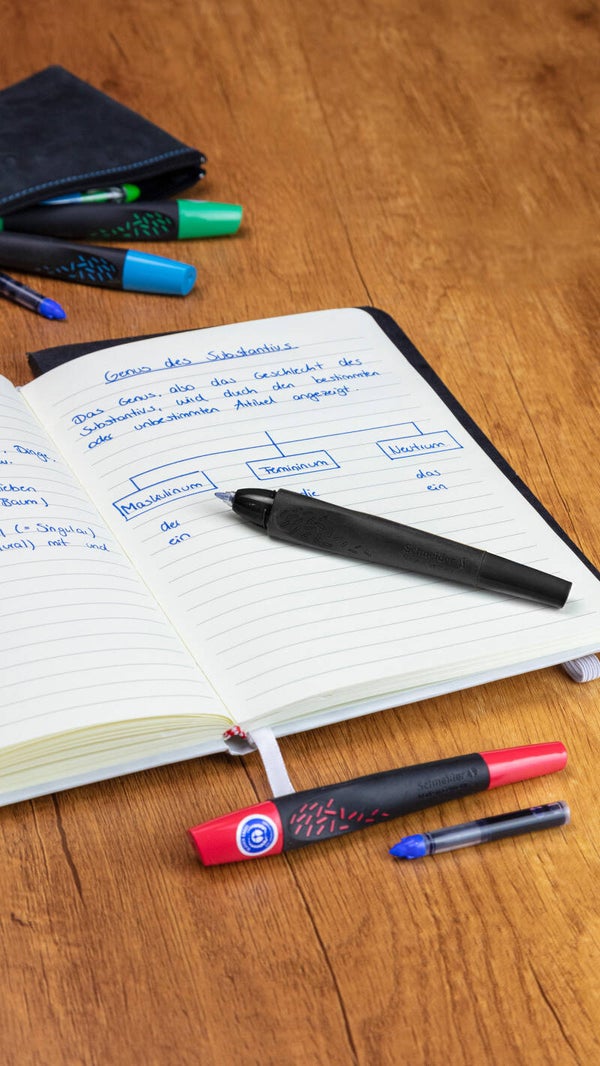 , Dinge,
w.
ieben
Baum)
(= Singular)
ural) mit und
Genus des Substantivs
Das Genus, also das Geschlecht des
Substantivs, wird durch den bestimmten
oder unbestimmten Artikel angezeigt.
Maskulinum
Femininum
Neutrum
der
ein
die
das
ein
Schneider
Schneider